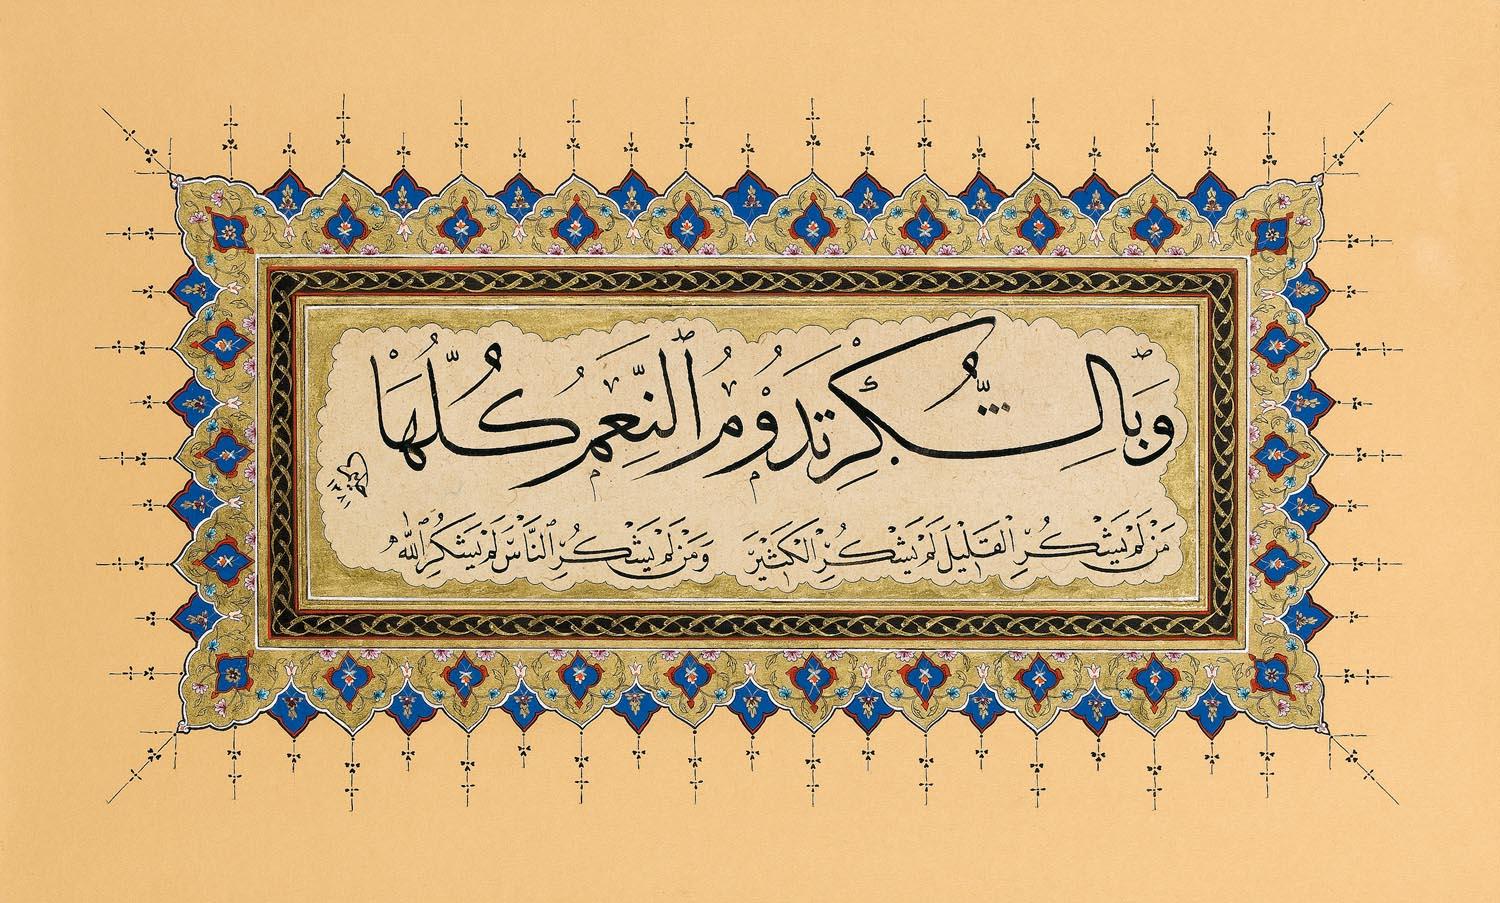 وَبِالشُّكْرِ تَدُوْمُ ٱلنِّعَمُ كُلُّهَا
مَنْ لَمْ يَشْكُرِ الْقَلِيْلَ لَمْ يَشْكُرِ الْكَثِيْرَ وَمَنْ لَمْ يَشْكُرِ ٱلنَّاسَ لَمْ يَشْكُرِ ٱللّٰهَ